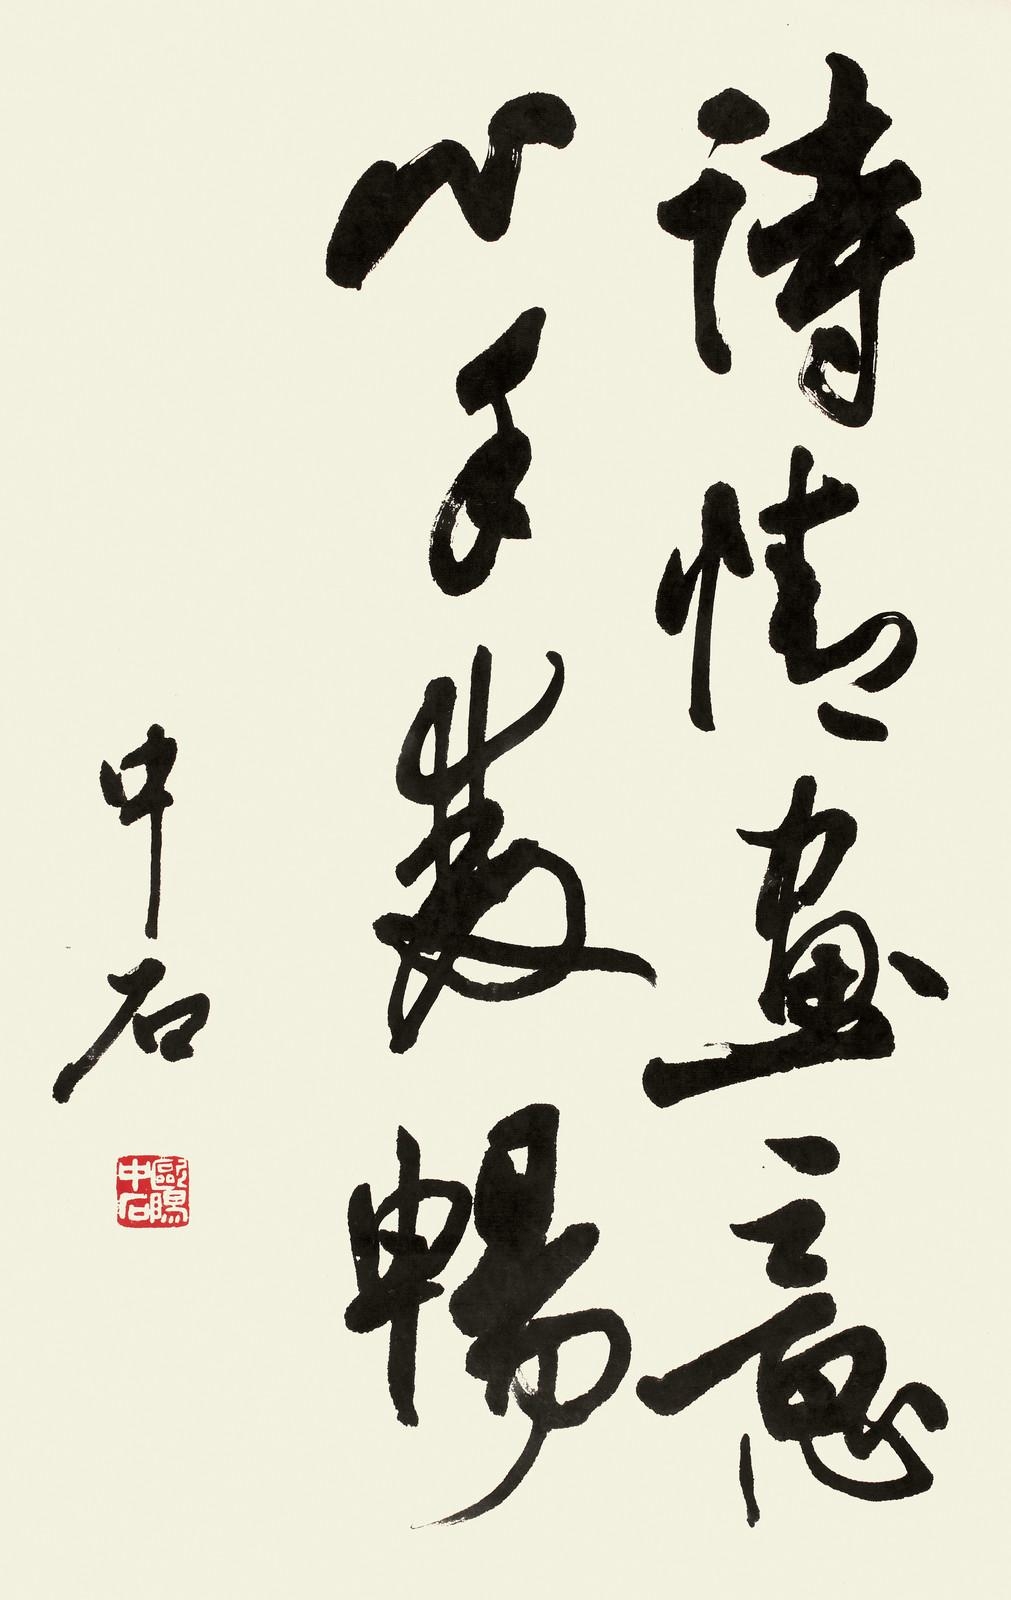 詩情畫意
心手雙暢
中石
歐陽中石